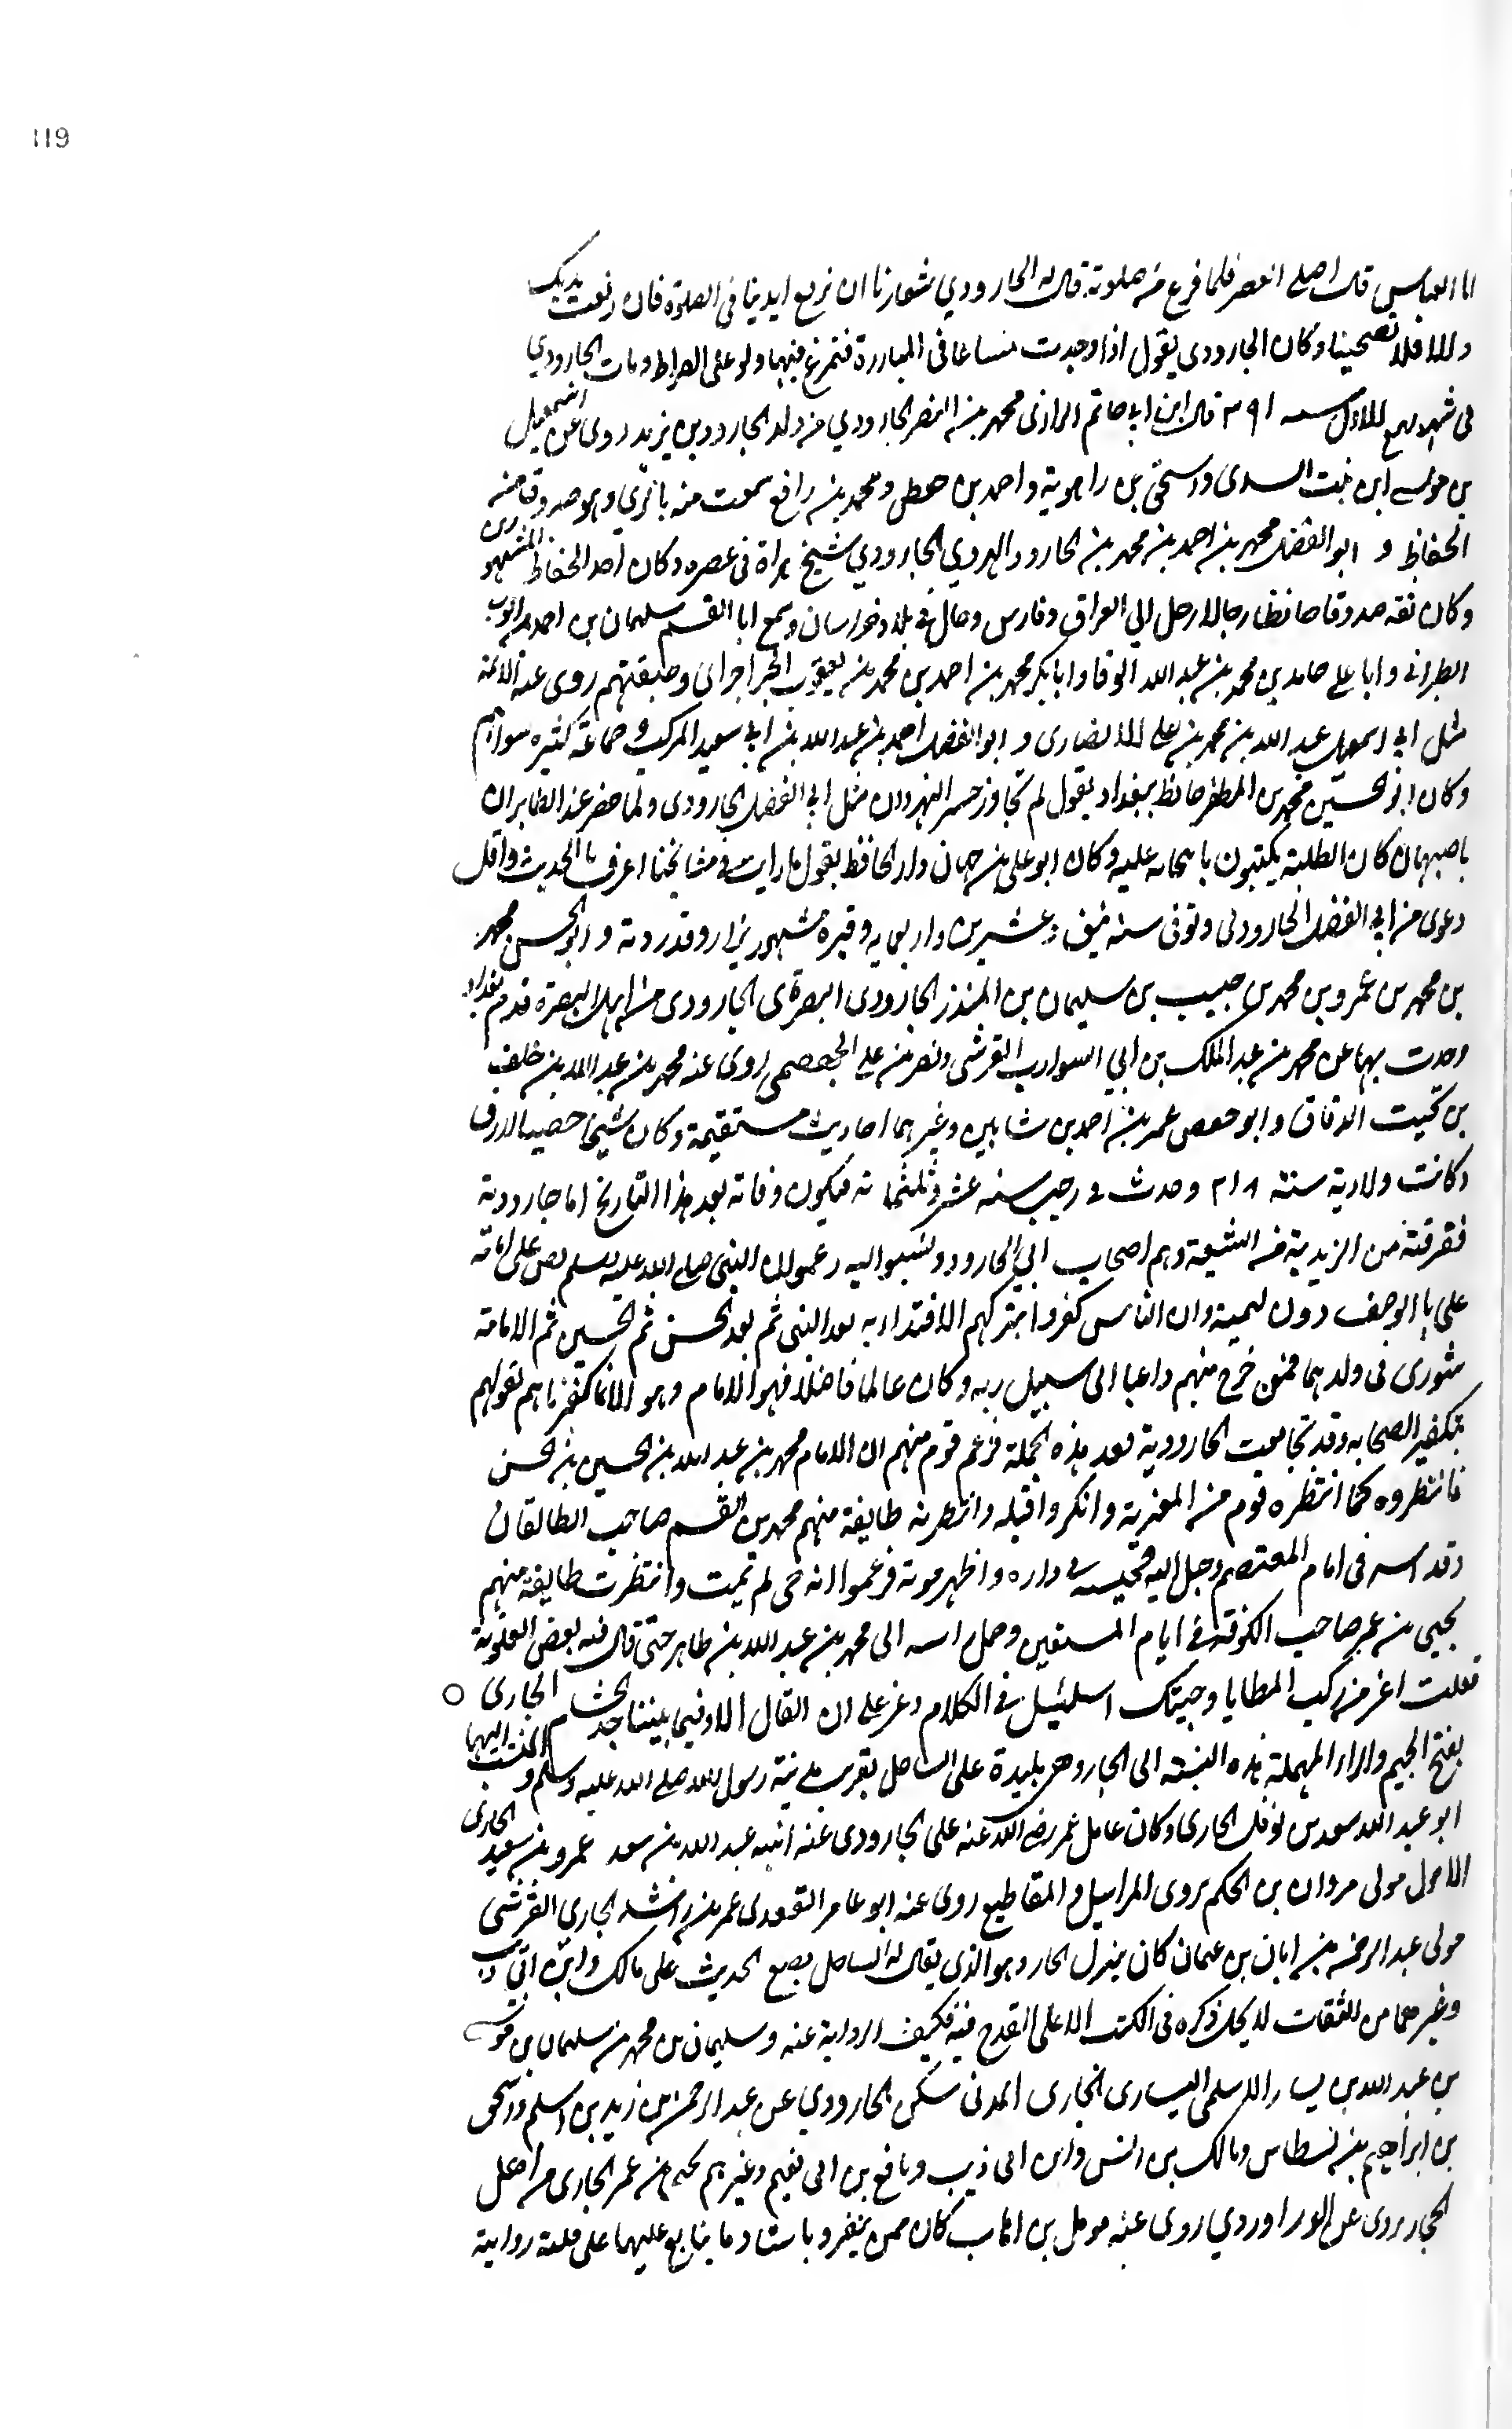 119
ابا العباس قال اصلى العصر فلما فرغ من صلوته قال له الجارودي شعارنا ان نرفع ايدينا فى الصلوة فان رفعت يديك
والا فلا تصحبنا وكان الجارودى يقول اذا وجدت مساغا فى المبادرة فتمرغ فيها ولو على الصراط ومات الجارودي
فى شهر ربيع الاول سنة ٢٩١ قال ابن ابي حاتم الرازى محمد بن النضر الجارودي من ولد الجارود بن يزيد روى عن اسمعيل
بن موسى ابن بنت السدى واسحق بن راهوية واحمد بن حفص ومحمد بن رافع سمعت منه بالري وهو صدوق من
الحفاظ و ابو الفضل محمد بن احمد بن محمد بن الجارود الهروي الجارودي شيخ هراة فى عصره وكان احد الحفاظ المشهورين
وكان ثقه صدوقا حافظا رحالا رحل الي العراق وفارس وجال في بلاد خراسان وسمع ابا القسم سليمان بن احمد بن ايوب
الطبرانى وابا على حامد بن محمد بن عبد الله الرفا وابا بكر محمد بن احمد بن محمد بن يعقوب الجرجرائى وطبقتهم روى عنه الائمة
مثل ابى اسمعيل عبد الله بن محمد بن على الانصارى و ابو الفضل احمد بن عبد الله بن ابي سعيد المزكى وجماعة كثيره سواهم
وكان ابو الحسين محمد بن المظفر حافظ ببغداد يقول لم تجاوز جسر النهروان مثل ابي الفضل الجارودى ولما حضر عند الطبرانى
باصبهان كان الطلبة يكتبون بانتخابه عليه وكان ابو على بن جهاندار الحافظ يقول ما رايت فى مشايخنا اعرف بالحديث واقل
دعوى من ابي الفضل الجارودى وتوفى سنه نيف وعشرين واربعمايه وقبره مشهور يزار وقد زرته و ابو الحسن محمد
بن محمد بن عمرو بن محمد بن حبيب بن سليمان بن المنذر الجارودى البصرى الجارودى من اهل البصرة قدم بغداد
وحدث بها عن محمد بن عبد الملك بن ابي الشوارب القرشى ونصر بن على الجهضمى روى عنه محمد بن عبد الله بن خلف
بن بخيت الدقاق وابو حفص عمر بن احمد بن شاهين وغيرهما احاديث مستقيمة وكان شيخا
وكانت ولادته سنة ٢١٨ وحدث فى رجب سنه عشر وثلثمائة فيكون وفاته بعد هذا التاريخ اما جارودية
ففرقة من الزيدية من الشيعة وهم اصحاب ابي الجارود ونسبوا اليه زعموا ان النبى صلى الله عليه وسلم نص على امامة
على بالوصف دون تسمية وان الناس كفروا بتركهم الاقتداء به بعد النبى ثم بعد الحسن ثم الحسين ثم الامامة
شورى فى ولدهما فمن خرج منهم داعيا الى سبيل ربه وكان عالما فاضلا فهو الامام وهولاء انما كفرناهم لقولهم
بتكفير الصحابه وقد تجامعت الجارودية بعد هذه الجملة فزعم قوم منهم ان الامام محمد بن عبد الله بن الحسين بن الحسن
فانتظروه كما انتظره قوم من المغيرية وانكروا قتله وانتظرت طايفة منهم محمد بن القسم صاحب الطالقان
وقد اسر فى ايام المعتصم وحمل اليه فحبسه فى داره واظهر موته فزعموا انه حى لم يمت وانتظرت طايفة منهم
يحيى بن عمر صاحب الكوفة فى ايام المستعين وحمل راسه الى محمد بن عبد الله بن طاهر حتى قال فيه بعض العلوية
قتلت اعز من ركب المطايا وجيتك استلينك فى الكلام وعز على ان القاك الا وفيما بيننا حد الحسام الجارى ○
بفتح الجيم والراء المهملة هذه النسبة الى الجار وهى بليدة على الساحل بقرب مدينة رسول الله صلى الله عليه وسلم والمنتسب اليها
ابو عبد الله سعد بن نوفل الجارى وكان عامل عمر رضى الله عنه على الجار روى عنه ابنه عبد الله بن سعد عمرو بن سعيد الجارى
الاحول مولى مروان بن الحكم يروى المراسيل والمقاطيع روى عنه ابو عامر العقدى عمر بن راشد الجاري القرشى
مولى عبد الرحمن بن ابان بن عثمان كان ينزل الجار وهو الذى يقال له الساحل يضع الحديث على مالك وابن ابي ذيب
وغيرهما من الثقات لا يحل ذكره فى الكتب الا على القدح فيه فكيف الرواية عنه وسليمان بن محمد بن سليمان بن موسى
بن عبد الله بن يسار الاسلمى اليسارى الجارى المدنى سكن الجار روى عن عبد الرحمن بن زيد بن اسلم واسحق
بن ابراهيم بن نسطاس ومالك بن انس وابن ابى ذيب ونافع بن ابى نعيم وغيرهم يحيى بن عمر الجارى من اهل
الجار يروى عن الدراوردي روى عنه مومل بن اهاب كان ممن ينفرد باشياء ما يتابع عليها على قلة روايته